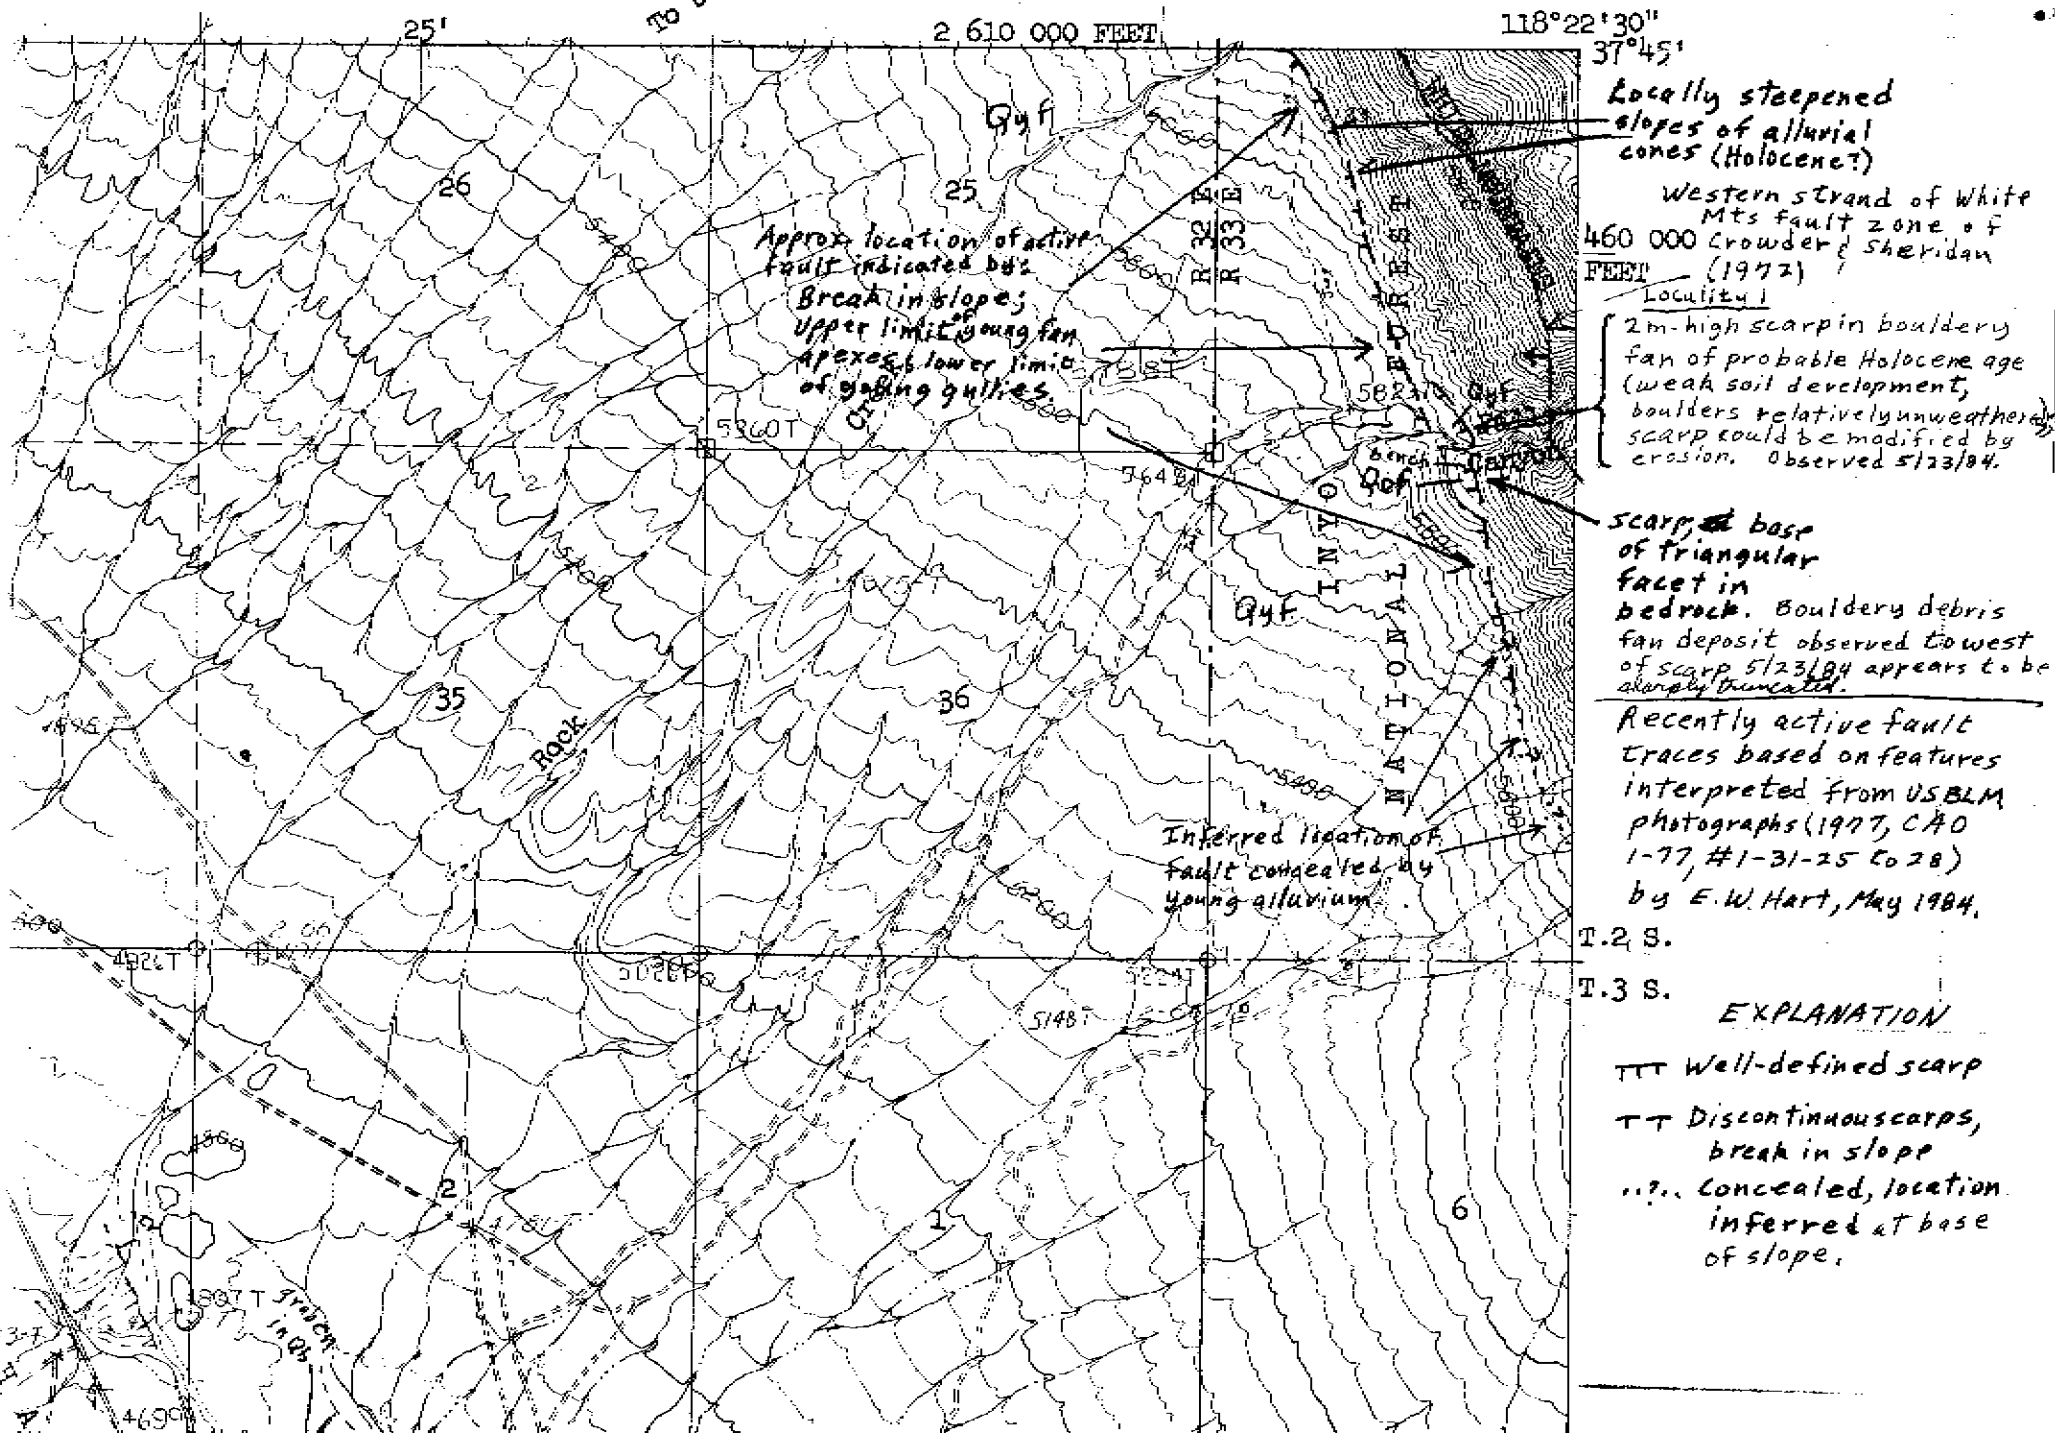 25'
To
2 610 000 FEET
118°22'30"
37°45'
Locally steepened
slopes of alluvial
cones (Holocene?)
Western strand of White
Mts fault zone of
Crowder & Sheridan
(1972)
460 000
FEET
Locality 1
2m-high scarp in bouldery
fan of probable Holocene age
(weak soil development,
boulders relatively unweathered);
scarp could be modified by
erosion. Observed 5/23/84.
scarp, at base
of triangular
facet in
bedrock. Bouldery debris
fan deposit observed to west
of scarp 5/23/84 appears to be
sharply truncated.
Recently active fault
traces based on features
interpreted from USBLM
photographs (1977, CAO
1-77, #1-31-25 to 28)
by E.W. Hart, May 1984.
T.2 S.
T.3 S.
EXPLANATION
Well-defined scarp
Discontinuous carps,
break in slope
..?.. Concealed, location
inferred at base
of slope.
Qyf
26
25
R 32 E
R 33 E
Approx. location of active
fault indicated by:
Break in slope;
Upper limit of young fan
apexes & lower limit
of young gullies.
5360T
Qyf
bench
Canyon
Qof
INYO
NATIONAL
FOREST
5400
Qyf
35
36
Rock
5200
Inferred location of
fault concealed by
young alluvium.
4826T
5148T
4800
2
1
6
graben
in Qb